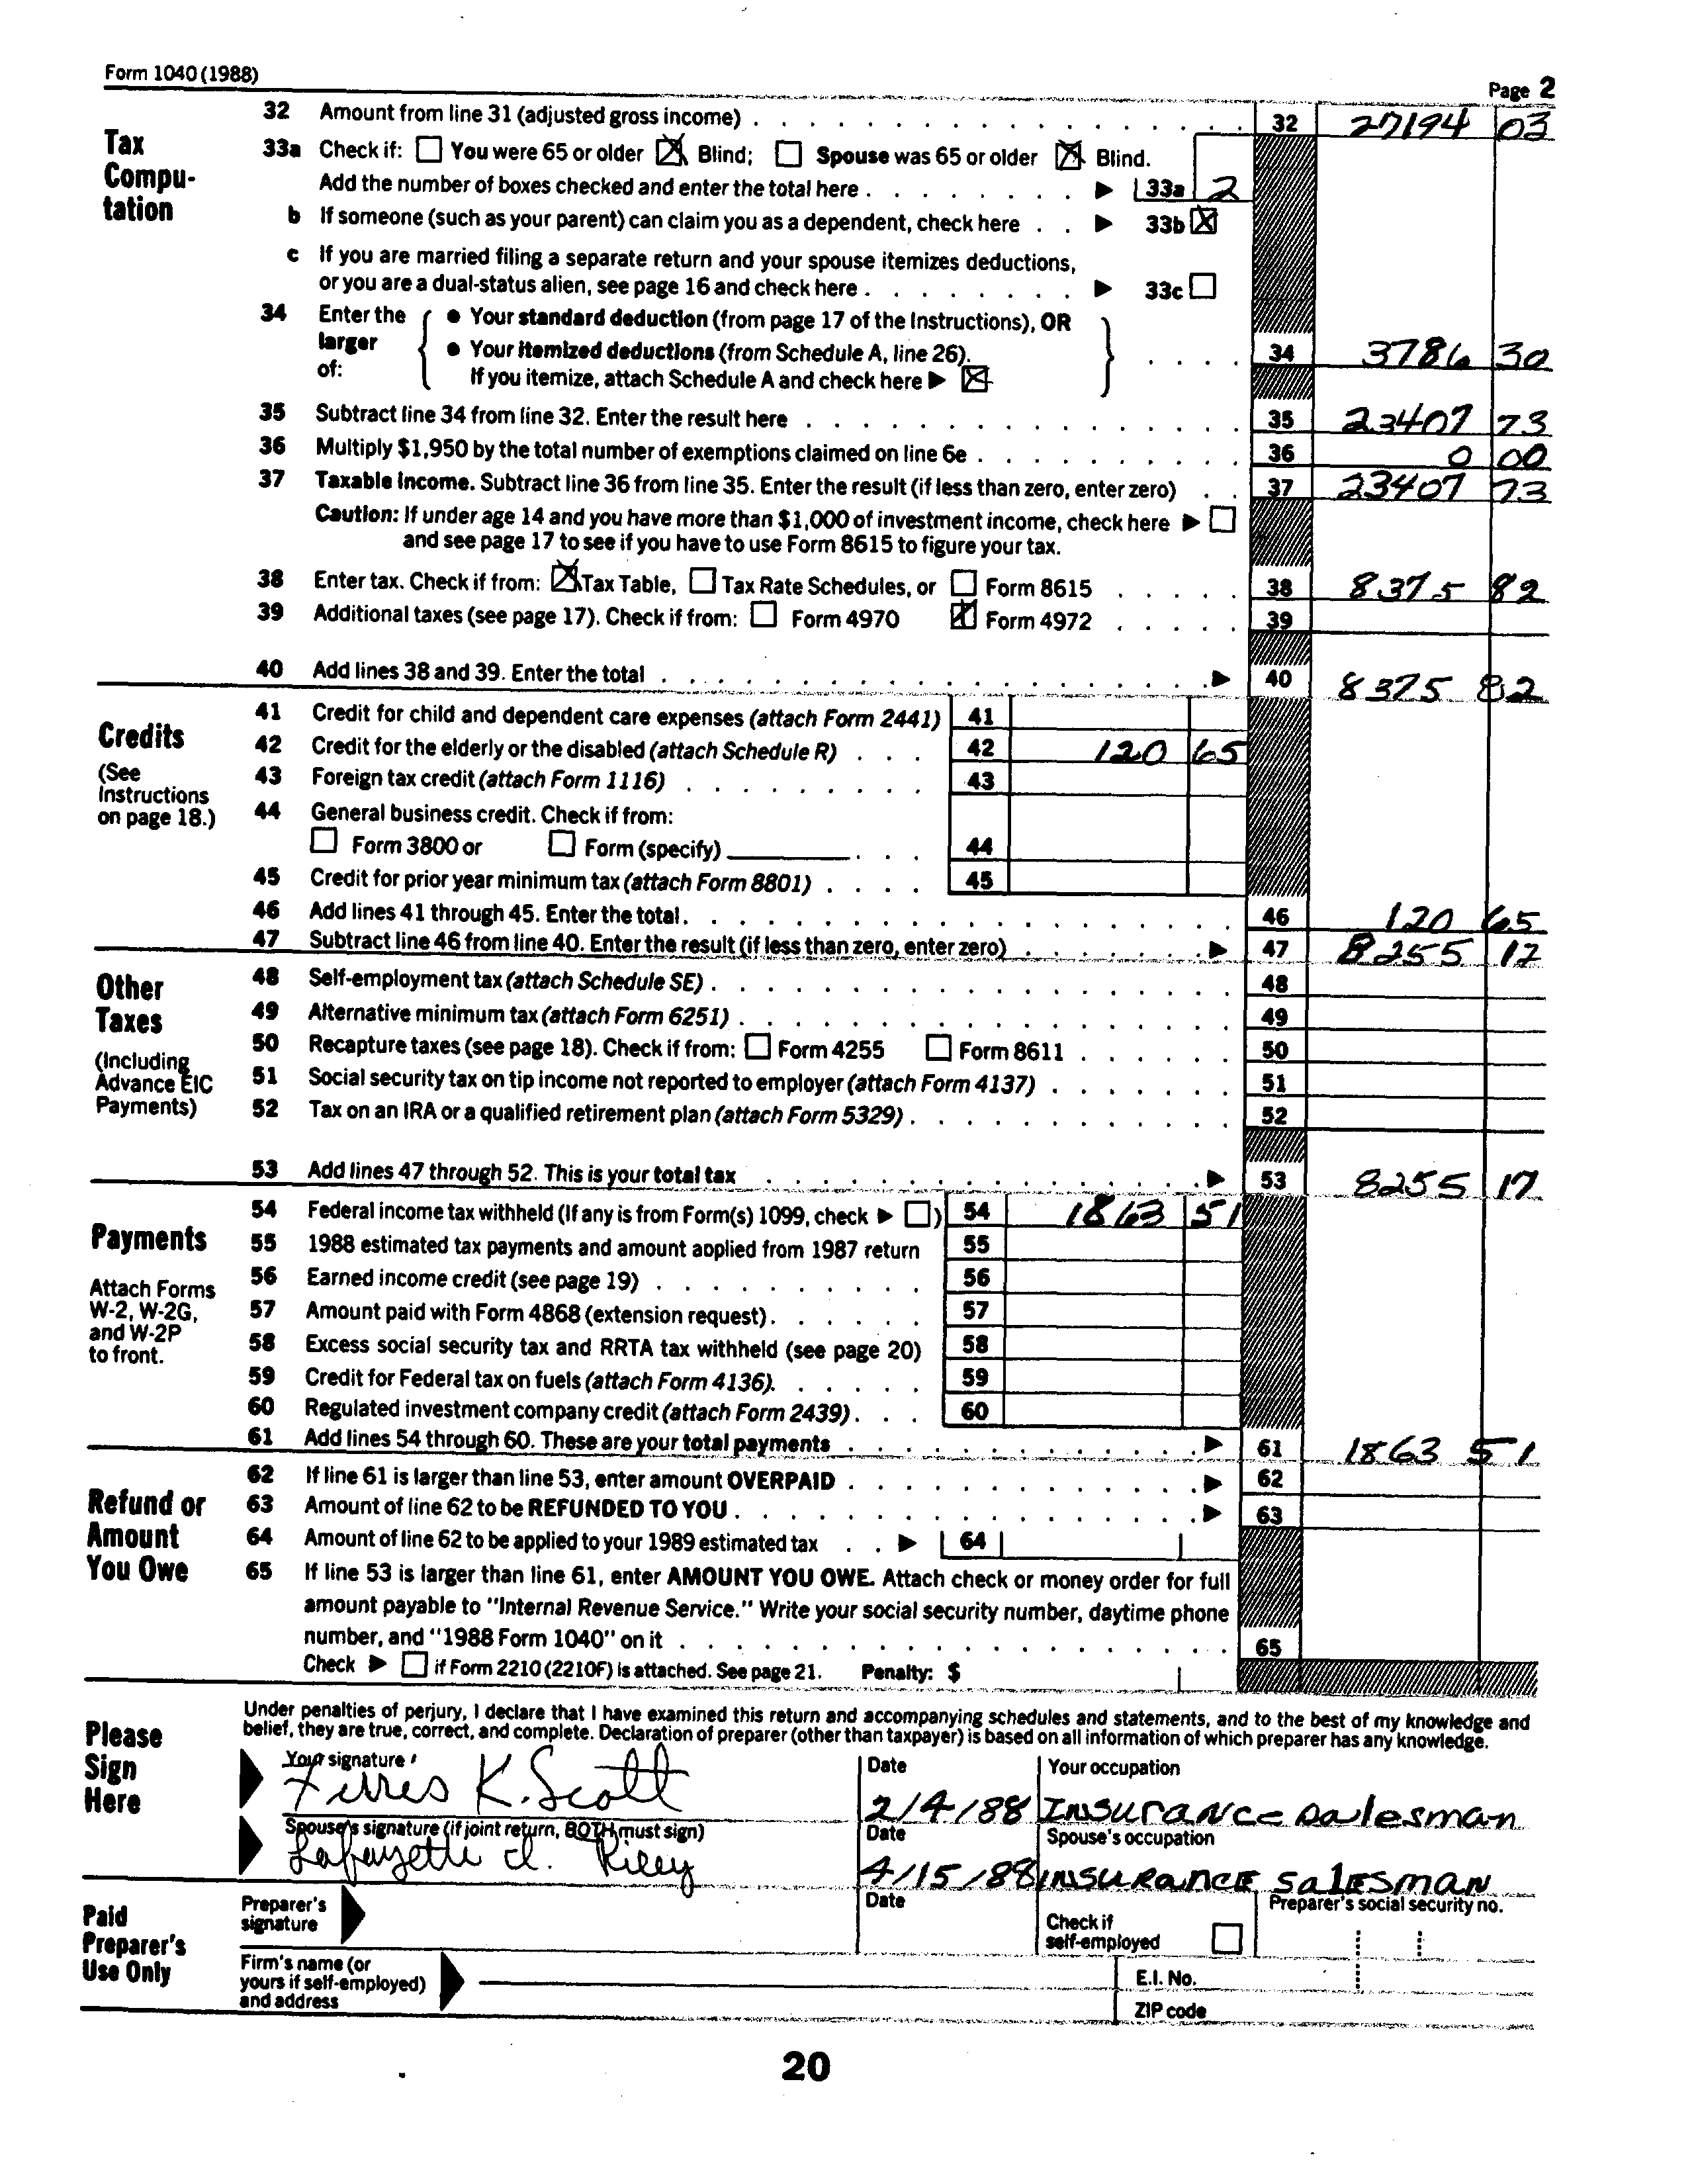 Form 1040 (1988)
Page 2
Tax Compu-tation
32 Amount from line 31 (adjusted gross income) 32 27194 03
33a Check if: You were 65 or older Blind; Spouse was 65 or older Blind.
Add the number of boxes checked and enter the total here 33a 2
b If someone (such as your parent) can claim you as a dependent, check here 33b
c If you are married filing a separate return and your spouse itemizes deductions,
or you are a dual-status alien, see page 16 and check here 33c
34 Enter the larger of:
• Your standard deduction (from page 17 of the Instructions), OR
• Your itemized deductions (from Schedule A, line 26).
If you itemize, attach Schedule A and check here
34 3786 30
35 Subtract line 34 from line 32. Enter the result here 35 23407 73
36 Multiply $1,950 by the total number of exemptions claimed on line 6e 36 0 00
37 Taxable income. Subtract line 36 from line 35. Enter the result (if less than zero, enter zero) 37 23407 73
Caution: If under age 14 and you have more than $1,000 of investment income, check here
and see page 17 to see if you have to use Form 8615 to figure your tax.
38 Enter tax. Check if from: Tax Table, Tax Rate Schedules, or Form 8615 38 8375 82
39 Additional taxes (see page 17). Check if from: Form 4970 Form 4972 39
40 Add lines 38 and 39. Enter the total 40 8375 82
Credits
(See Instructions on page 18.)
41 Credit for child and dependent care expenses (attach Form 2441) 41
42 Credit for the elderly or the disabled (attach Schedule R) 42 120 65
43 Foreign tax credit (attach Form 1116) 43
44 General business credit. Check if from:
Form 3800 or Form (specify) 44
45 Credit for prior year minimum tax (attach Form 8801) 45
46 Add lines 41 through 45. Enter the total 46 120 65
47 Subtract line 46 from line 40. Enter the result (if less than zero, enter zero) 47 8255 17
Other Taxes
(Including Advance EIC Payments)
48 Self-employment tax (attach Schedule SE) 48
49 Alternative minimum tax (attach Form 6251) 49
50 Recapture taxes (see page 18). Check if from: Form 4255 Form 8611 50
51 Social security tax on tip income not reported to employer (attach Form 4137) 51
52 Tax on an IRA or a qualified retirement plan (attach Form 5329) 52
53 Add lines 47 through 52. This is your total tax 53 8255 17
Payments
Attach Forms W-2, W-2G, and W-2P to front.
54 Federal income tax withheld (If any is from Form(s) 1099, check ) 54 1863 51
55 1988 estimated tax payments and amount applied from 1987 return 55
56 Earned income credit (see page 19) 56
57 Amount paid with Form 4868 (extension request) 57
58 Excess social security tax and RRTA tax withheld (see page 20) 58
59 Credit for Federal tax on fuels (attach Form 4136) 59
60 Regulated investment company credit (attach Form 2439) 60
61 Add lines 54 through 60. These are your total payments 61 1863 51
Refund or Amount You Owe
62 If line 61 is larger than line 53, enter amount OVERPAID 62
63 Amount of line 62 to be REFUNDED TO YOU 63
64 Amount of line 62 to be applied to your 1989 estimated tax 64
65 If line 53 is larger than line 61, enter AMOUNT YOU OWE. Attach check or money order for full
amount payable to "Internal Revenue Service." Write your social security number, daytime phone
number, and "1988 Form 1040" on it 65
Check if Form 2210 (2210F) is attached. See page 21. Penalty: $
Please Sign Here
Under penalties of perjury, I declare that I have examined this return and accompanying schedules and statements, and to the best of my knowledge and
belief, they are true, correct, and complete. Declaration of preparer (other than taxpayer) is based on all information of which preparer has any knowledge.
Your signature Date Your occupation
K. Scott 2/4/88 Insurance salesman
Spouse's signature (if joint return, BOTH must sign) Date Spouse's occupation
Lafayette d. Riley 4/15/88 INSURANCE SALESMAN
Paid Preparer's Use Only
Preparer's signature
Date
Check if self-employed
Preparer's social security no.
Firm's name (or yours if self-employed) and address
E.I. No.
ZIP code
20